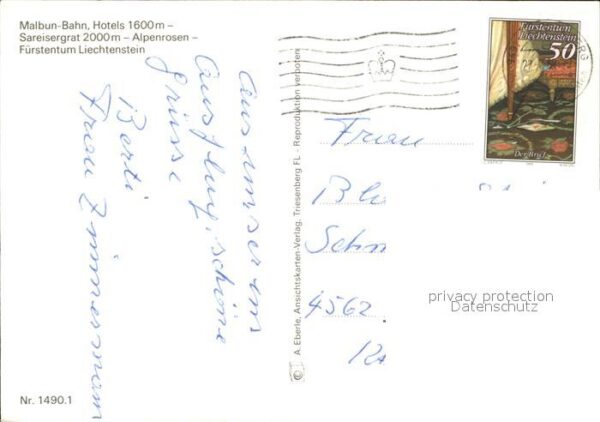 Malbun-Bahn, Hotels 1600m –
Sareisergrat 2000m – Alpenrosen –
Fürstentum Liechtenstein
Aus unserem
Ausflug, schöne
Grüsse
Berti
Frau Zimmermann
Nr. 1490.1
© A. Eberle, Ansichtskarten-Verlag, Triesenberg FL - Reproduktion verboten
Fürstentum
Liechtenstein
50
Der Brief
Frau
Schn
4562
privacy protection
Datenschutz